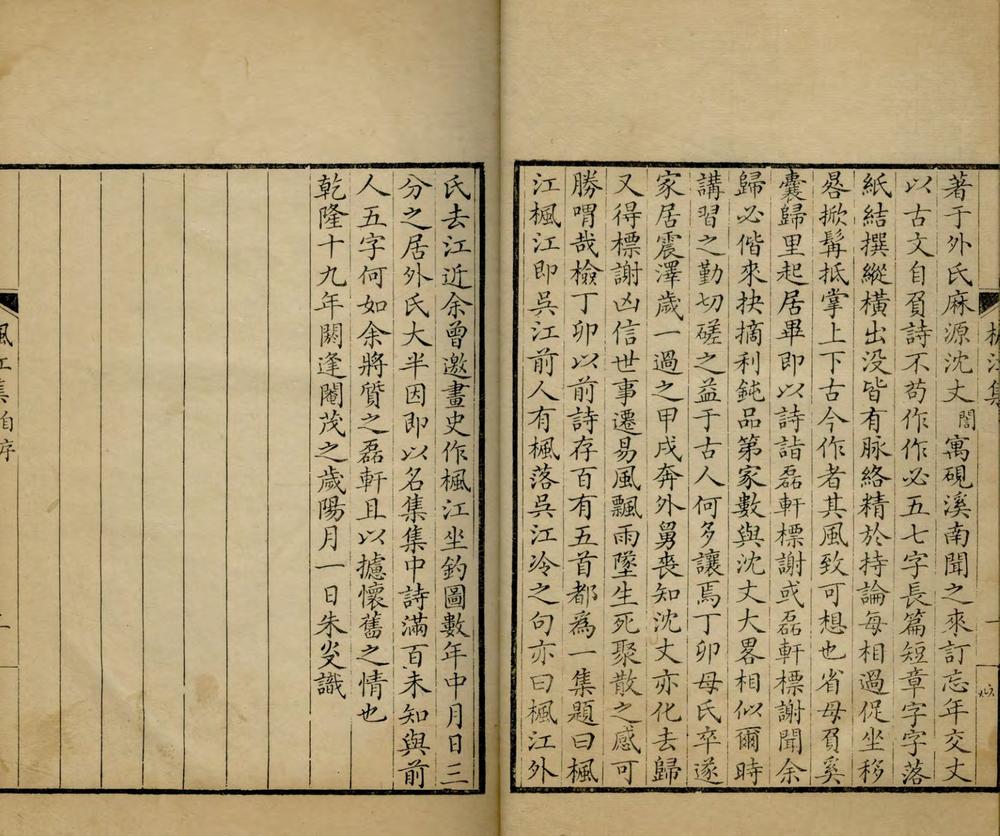 著于外氏麻源沈丈誾寓硯溪南聞之來訂忘年交丈
以古文自負詩不苟作作必五七字長篇短章字字落
紙結撰縱橫出没皆有脉絡精於持論每相過促坐移
晷掀髯抵掌上下古今作者其風致可想也省母負奚
囊歸里起居畢即以詩詣磊軒標謝或磊軒標謝聞余
歸必偕來抉摘利鈍品第家數與沈丈大畧相似爾時
講習之勤切磋之益于古人何多讓焉丁卯母氏卒遂
家居震澤歲一過之甲戌奔外舅喪知沈丈亦化去歸
又得標謝凶信世事遷易風飄雨墜生死聚散之感可
勝喟哉檢丁卯以前詩存百有五首都為一集題曰楓
江楓江即吳江前人有楓落吳江冷之句亦曰楓江外
楓江集
一
氏去江近余曾邀畫史作楓江坐釣圖數年中月日三
分之居外氏大半因即以名集集中詩滿百未知與前
人五字何如余將質之磊軒且以攄懷舊之情也
乾隆十九年閼逢閹茂之歲陽月一日朱㚫識
楓江集自序
二